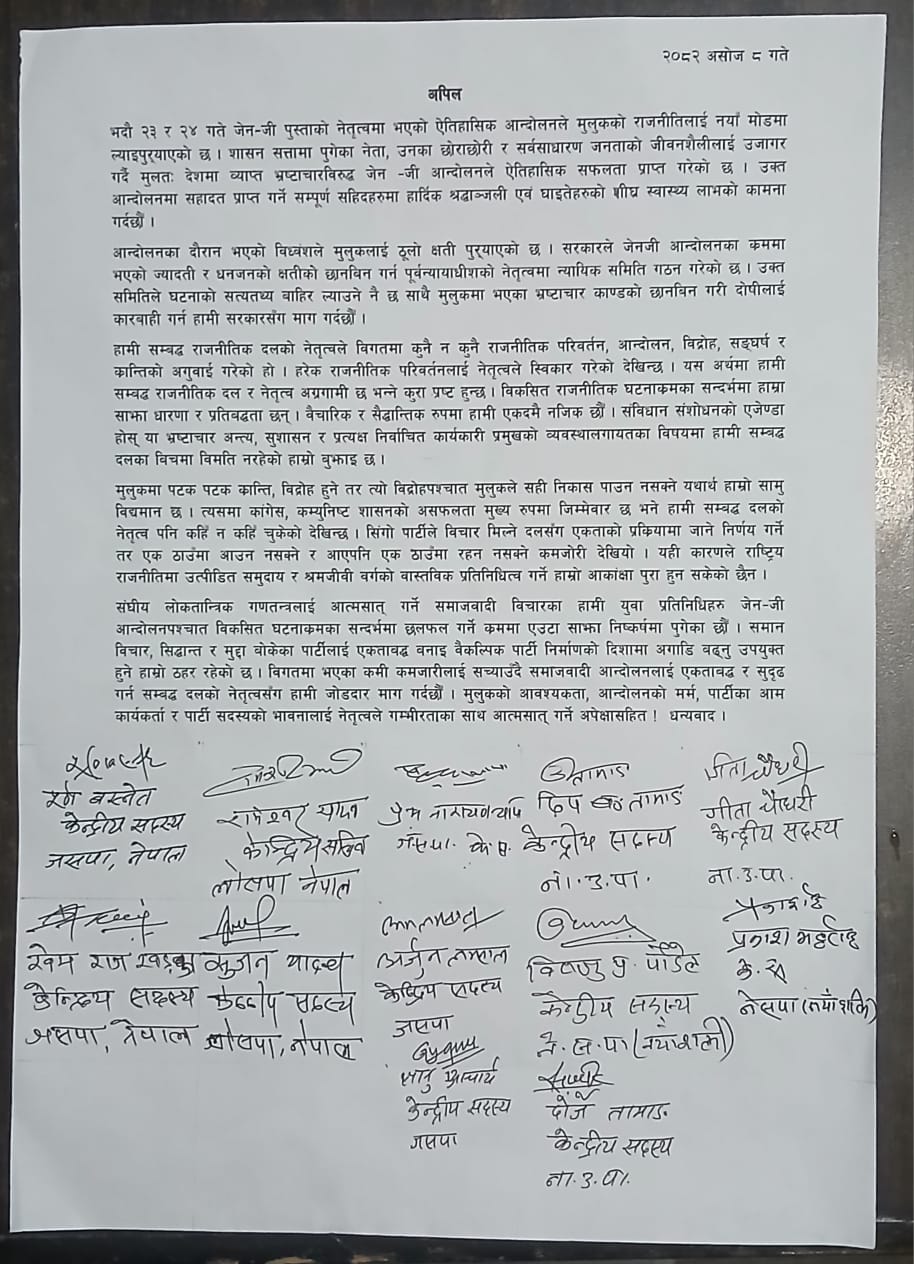 २०८२ असोज ८ गते
अपिल
भदौ २३ र २४ गते जेन-जी पुस्ताको नेतृत्वमा भएको ऐतिहासिक आन्दोलनले मुलुकको राजनीतिलाई नयाँ मोडमा
ल्याइपुर्‍याएको छ । शासन सत्तामा पुगेका नेता, उनका छोराछोरी र सर्वसाधारण जनताको जीवनशैलीलाई उजागर
गर्दै मुलतः देशमा व्याप्त भ्रष्टाचारविरुद्ध जेन -जी आन्दोलनले ऐतिहासिक सफलता प्राप्त गरेको छ । उक्त
आन्दोलनमा सहादत प्राप्त गर्ने सम्पूर्ण सहिदहरुमा हार्दिक श्रद्धाञ्जली एवं घाइतेहरुको शीघ्र स्वास्थ्य लाभको कामना
गर्दछौं ।
आन्दोलनका दौरान भएको विध्वंशले मुलुकलाई ठूलो क्षती पुर्‍याएको छ । सरकारले जेनजी आन्दोलनका क्रममा
भएको ज्यादती र धनजनको क्षतीको छानविन गर्न पूर्वन्यायाधीशको नेतृत्वमा न्यायिक समिति गठन गरेको छ । उक्त
समितिले घटनाको सत्यतथ्य बाहिर ल्याउने नै छ साथै मुलुकमा भएका भ्रष्टाचार काण्डको छानविन गरी दोषीलाई
कारवाही गर्न हामी सरकारसँग माग गर्दछौं ।
हामी सम्बद्ध राजनीतिक दलको नेतृत्वले विगतमा कुनै न कुनै राजनीतिक परिवर्तन, आन्दोलन, विद्रोह, सङ्घर्ष र
क्रान्तिको अगुवाई गरेको हो । हरेक राजनीतिक परिवर्तनलाई नेतृत्वले स्विकार गरेको देखिन्छ । यस अर्थमा हामी
सम्बद्ध राजनीतिक दल र नेतृत्व अग्रगामी छ भन्ने कुरा प्रष्ट हुन्छ । विकसित राजनीतिक घटनाक्रमका सन्दर्भमा हाम्रा
साझा धारणा र प्रतिबद्धता छन् । वैचारिक र सैद्धान्तिक रुपमा हामी एकदमै नजिक छौं । संविधान संशोधनको एजेण्डा
होस् या भ्रष्टाचार अन्त्य, सुशासन र प्रत्यक्ष निर्वाचित कार्यकारी प्रमुखको व्यवस्थालगायतका विषयमा हामी सम्बद्ध
दलका विचमा विमति नरहेको हाम्रो बुझाइ छ ।
मुलुकमा पटक पटक क्रान्ति, विद्रोह हुने तर त्यो विद्रोहपश्चात मुलुकले सही निकास पाउन नसक्ने यथार्थ हाम्रो सामु
विद्यमान छ । त्यसमा कांग्रेस, कम्युनिष्ट शासनको असफलता मुख्य रुपमा जिम्मेवार छ भने हामी सम्बद्ध दलको
नेतृत्व पनि कहिं न कहिं चुकेको देखिन्छ । सिंगो पार्टीले विचार मिल्ने दलसंग एकताको प्रक्रियामा जाने निर्णय गर्ने
तर एक ठाउँमा आउन नसक्ने र आएपनि एक ठाउँमा रहन नसक्ने कमजोरी देखियो । यही कारणले राष्ट्रिय
राजनीतिमा उत्पीडित समुदाय र श्रमजीवी वर्गको वास्तविक प्रतिनिधित्व गर्ने हाम्रो आकांक्षा पुरा हुन सकेको छैन ।
संघीय लोकतान्त्रिक गणतन्त्रलाई आत्मसात् गर्ने समाजवादी विचारका हामी युवा प्रतिनिधिहरु जेन-जी
आन्दोलनपश्चात विकसित घटनाक्रमका सन्दर्भमा छलफल गर्ने क्रममा एउटा साझा निष्कर्षमा पुगेका छौं । समान
विचार, सिद्धान्त र मुद्दा बोकेका पार्टीलाई एकताबद्ध बनाइ वैकल्पिक पार्टी निर्माणको दिशामा अगाडि बढ्नु उपयुक्त
हुने हाम्रो ठहर रहेको छ । विगतमा भएका कमी कमजारीलाई सच्याउँदै समाजवादी आन्दोलनलाई एकताबद्ध र सुदृढ
गर्न सम्बद्ध दलको नेतृत्वसंग हामी जोडदार माग गर्दछौं । मुलुकको आवश्यकता, आन्दोलनको मर्म, पार्टीका आम
कार्यकर्ता र पार्टी सदस्यको भावनालाई नेतृत्वले गम्भीरताका साथ आत्मसात् गर्ने अपेक्षासहित ! धन्यवाद ।
बस्नेत
केन्द्रीय सदस्य
जसपा, नेपाल
लोसपा नेपाल
तामाङ
केन्द्रीय सदस्य
ना.उ.पा.
गीता चौधरी
गीता चौधरी
केन्द्रीय सदस्य
ना.उ.पा.
खेम राज
केन्द्रिय सदस्य
जसपा, नेपाल
यादव
लोसपा, नेपाल
अर्जुन
केन्द्रिय सदस्य
जसपा
आचार्य
केन्द्रीय सदस्य
जसपा
विष्णु प्र. पौडेल
केन्द्रीय सदस्य
ने.स.पा (नयाँशक्ति)
दोर्जे तामाङ
केन्द्रीय सदस्य
ना.उ.पा.
प्रकाश
नेसपा (नयाँशक्ति)